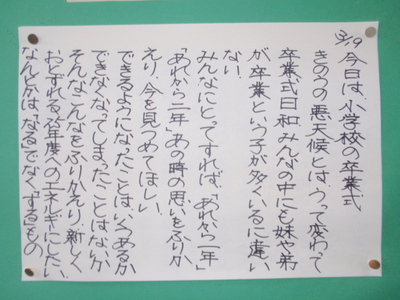 3/19 今日は、小学校の卒業式
きのうの悪天候とは、うって変わって
卒業式日和。みんなの中にも妹や弟
が卒業という子が多くいるに違い
ない。
みんなにとってすれば、「あれから一年」
「あれから二年」あの時の思いをふりか
えり、今を見つめてほしい。
できるようになったことはいくつあるか
できなくなってしまったことはないか
そんなこんなをふりかえり、新しく
おとずれる 年度へのエネルギーにしたい。
なんどかは「なる」でなく「する」もの